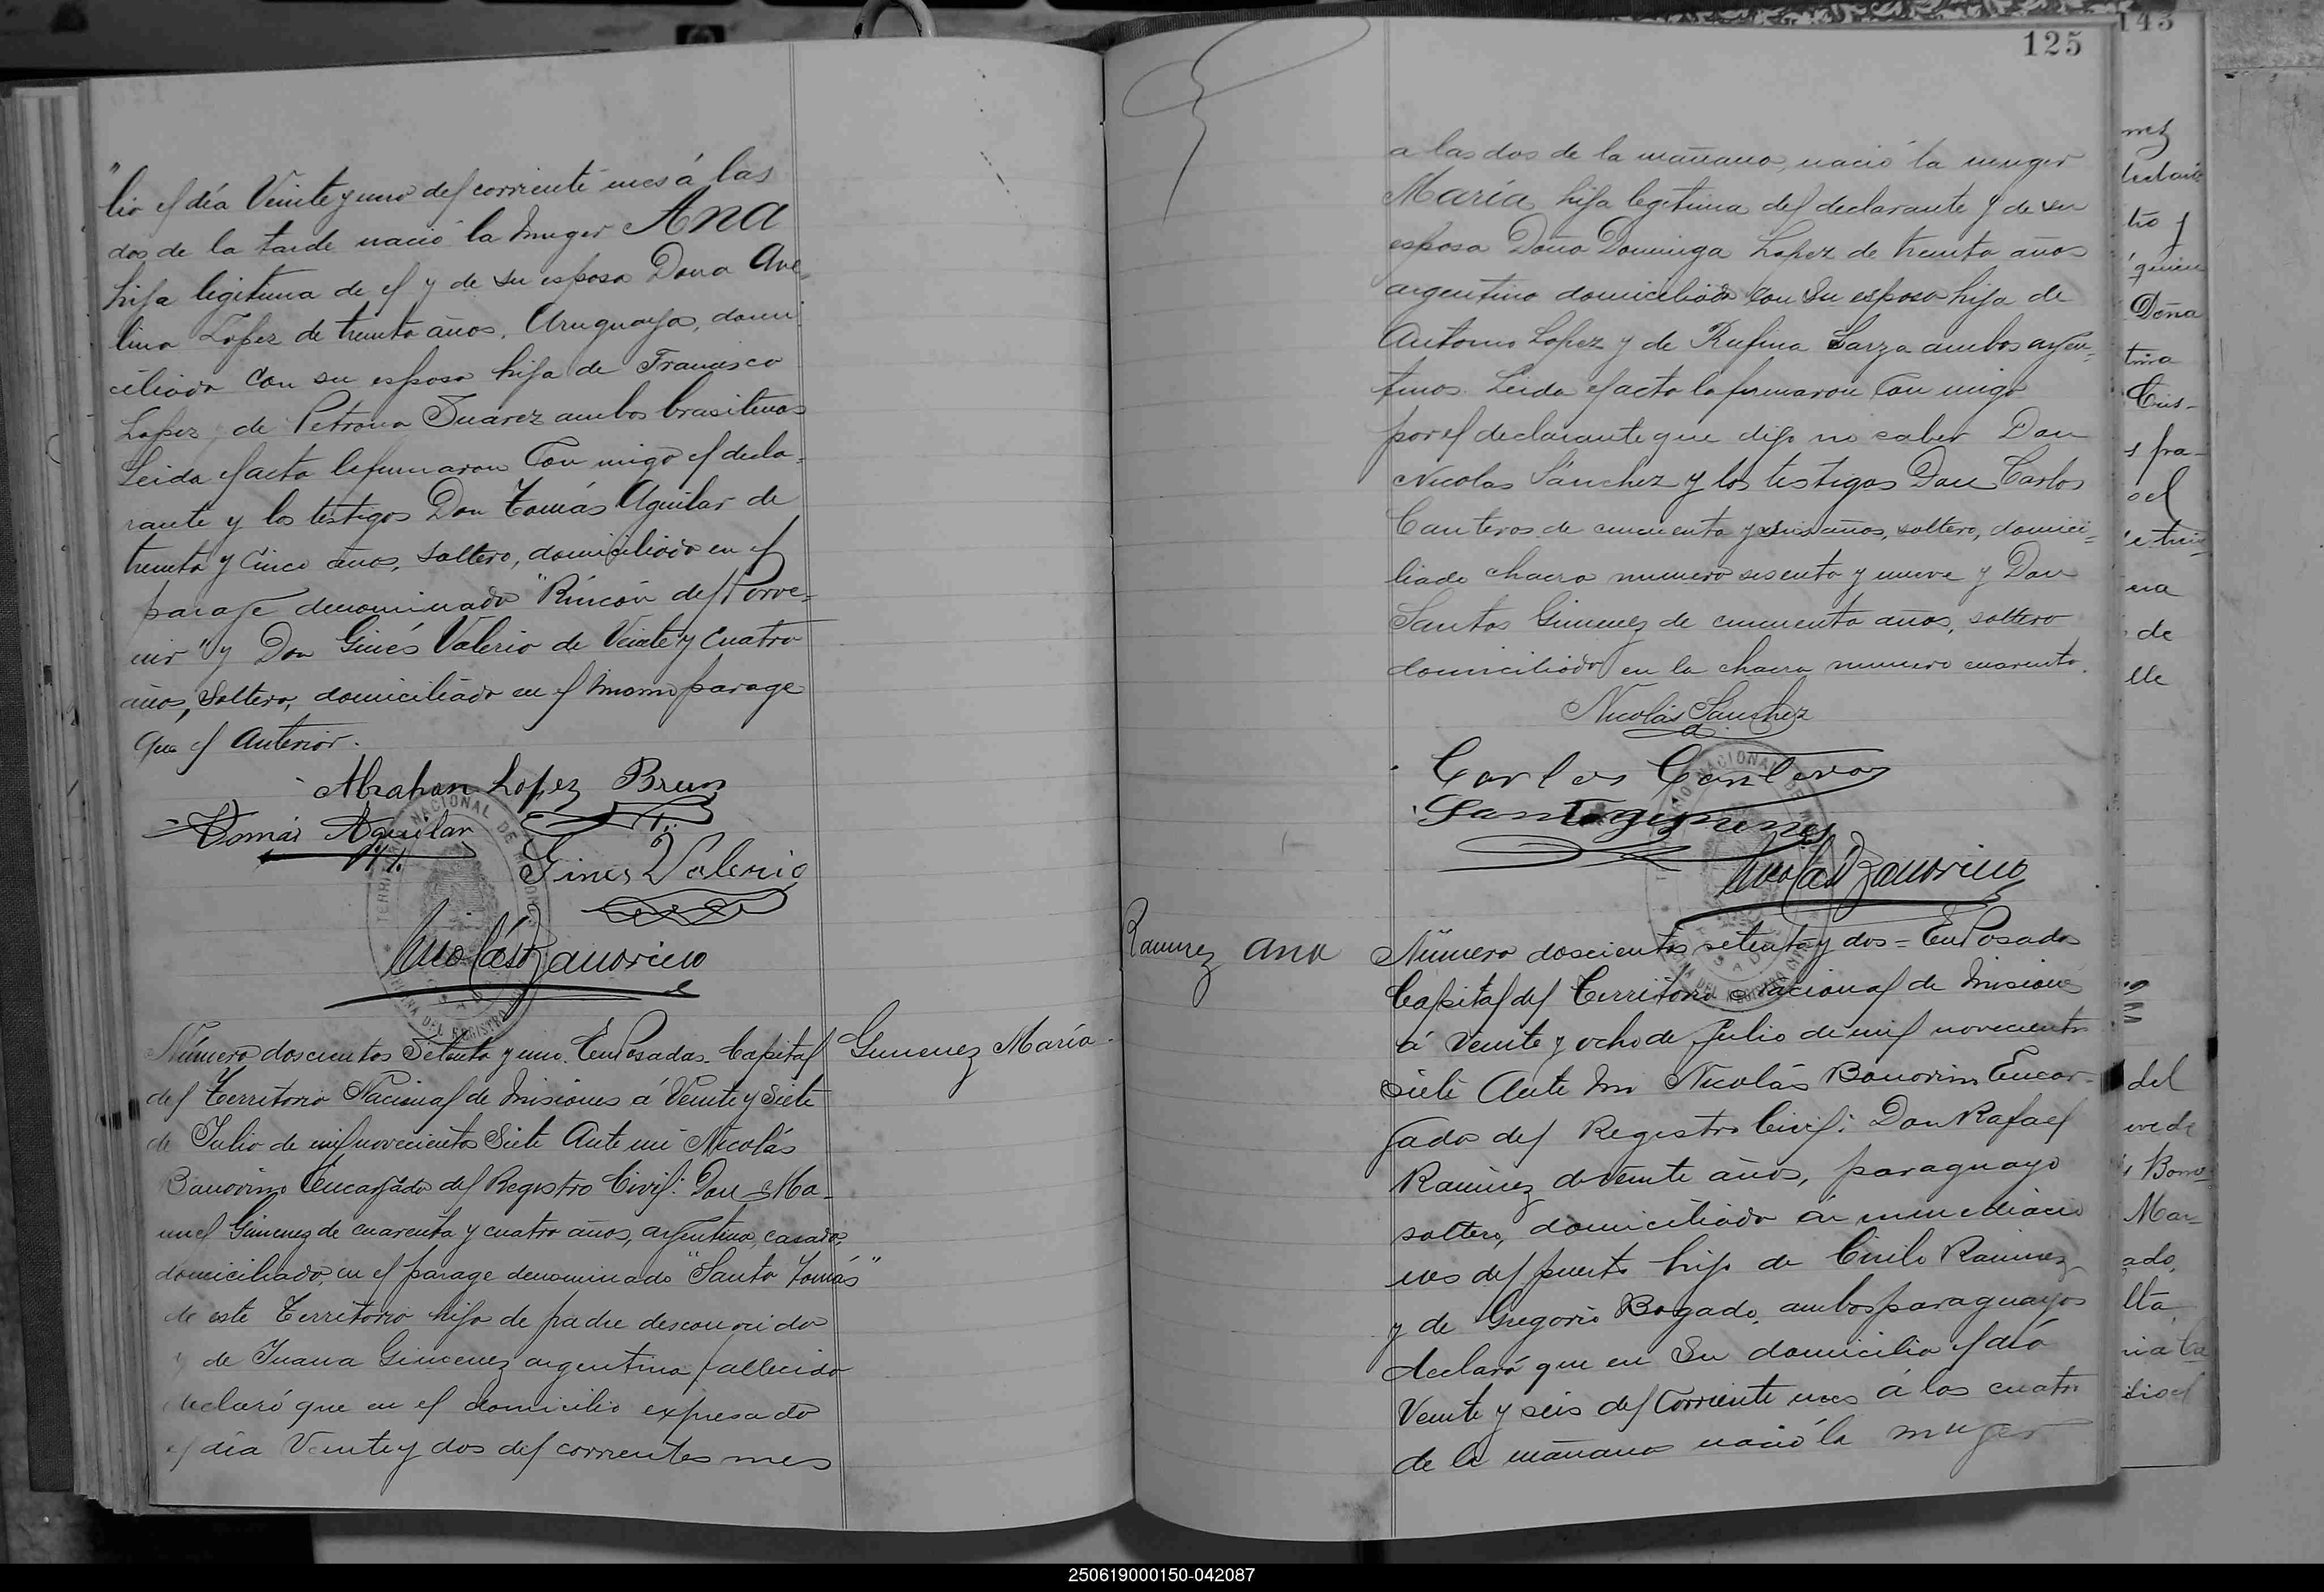 lio el día Veinte y uno del corriente mes á las
dos de la tarde nació la muger Ana
hija legitima de el y de su esposa Dona Ave
lina Lopez de treinta años, Uruguaya, domi
ciliada con su esposo hija de Francisco
Lopez y de Petrona Suarez ambos brasileños
Leida el acta la firmaron con migo el decla-
rante y los testigos Don Tomás Aguilar de
treinta y cinco años, soltero, domiciliado en el
parage denominado "Rincón del Porve-
nir" y Don Ginés Valerio de Veinte y cuatro
años, soltero, domiciliado en el mismo parage
que el anterior.
Abrahan Lopez Brun
Tomás Aguilar
Gines Valerio
Nicolás Bonorino
Número doscientos setenta y uno. En Posadas Capital
Gimenez María
del Territorio Nacional de Misiones á Veinte y Siete
de Julio de mil novecientos Siete Ante mi Nicolás
Bonorino Encargado del Registro Civil: Don Ma-
nuel Gimenez de cuarenta y cuatro años, argentino, casado,
domiciliado en el parage denominado "Santo Tomás"
de este Territorio hijo de padre desconocido
y de Juana Gimenez argentina fallecida
declaró que en el domicilio expresado
el día Veinte y dos del corrientes mes
125
a las dos de la mañana, nació la muger
María hija legitima del declarante y de su
esposa Doña Dominga Lopez de treinta años
argentina domiciliada con su esposo hija de
Antonio Lopez y de Rufina Garza ambos argen-
tinos. Leida el acta la firmaron con migo
por el declarante que dijo no saber Don
Nicolas Sánchez y los testigos Don Carlos
Canteros de cincuenta y seis años, soltero, domici-
liado chacra numero sesenta y nueve y Don
Santos Gimenez de cincuenta años, soltero
domiciliado en la chacra numero cuarenta.
Nicolás Sanchez
Carlos Canteros
Santo gimenes
Nicolás Bonorino
Ramirez Ana
Número doscientos setenta y dos = En Posadas
Capital del Territorio Nacional de Misiones
á Veinte y ocho de Julio de mil novecientos
siete Ante mi Nicolás Bonorino Encar-
gado del Registro Civil: Don Rafael
Ramirez de veinte años, paraguayo
soltero, domiciliado en inmediacio
nes del puerto hijo de Cirilo Ramirez
y de Gregoria Bogado, ambos paraguayos
declaró que en su domicilio el día
Veinte y seis del corriente mes á las cuatro
de la mañana nació la muger
143
250619000150-042087